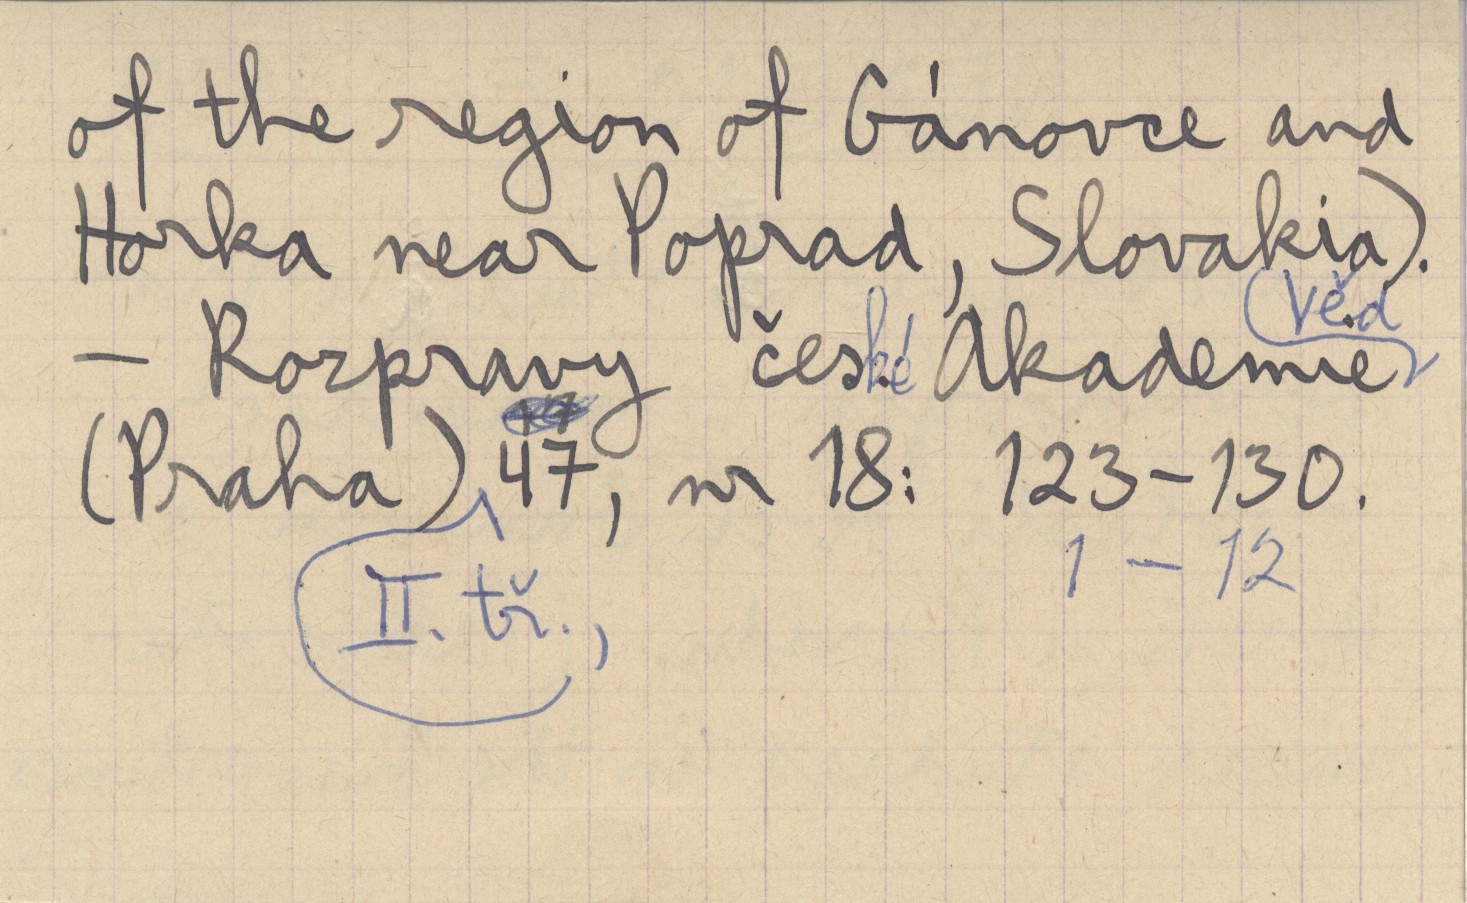 of the region of Gánovce and
Horka near Poprad, Slovakia).
věd
— Rozpravy české Akademie
(Praha) 47, nr 18: 123-130.
1 - 12
II. tř.,